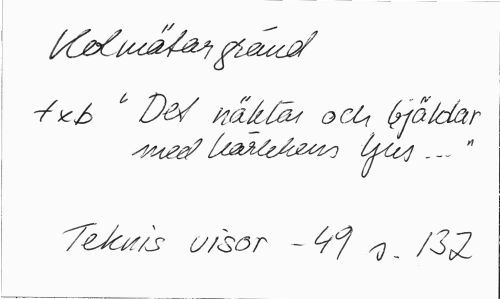 Kolmätargränd
txb "Det näktar och bjäldar
med kärlekens ljus ..."
Teknis visor -49 s. 132